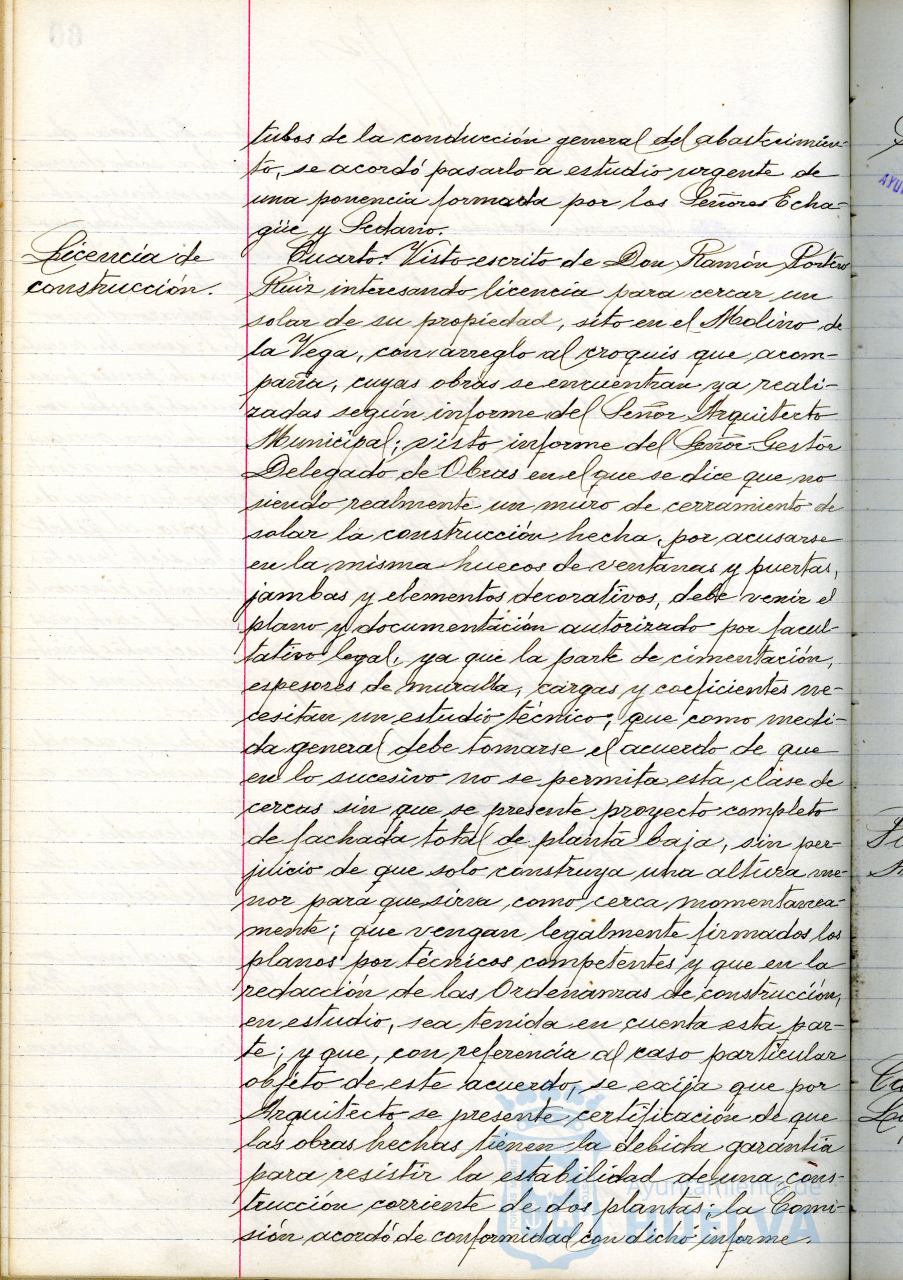 tubos de la conducción general del abastecimien-
to, se acordó pasarlo a estudio urgente de
una ponencia formada por los Señores Echa-
güe y Sedano.
Licencia de
construcción.
Cuarto: Visto escrito de Don Ramón Portero
Ruiz interesando licencia para cercar un
solar de su propiedad, sito en el Molino de
la Vega, con arreglo al croquis que acom-
paña, cuyas obras se encuentran ya reali-
zadas según informe del Señor Arquitecto
Municipal; visto informe del Señor Gestor
Delegado de Obras en el que se dice que no
siendo realmente un muro de cerramiento de
solar la construcción hecha, por acusarse
en la misma huecos de ventanas y puertas,
jambas y elementos decorativos, debe venir el
plano y documentación autorizado por facul-
tativo legal, ya que la parte de cimentación,
espesores de muralla, cargas y coeficientes ne-
cesitan un estudio técnico; que como medi-
da general debe tomarse el acuerdo de que
en lo sucesivo no se permita esta clase de
cercas sin que se presente proyecto completo
de fachada total de planta baja, sin per-
juicio de que solo construya una altura me-
nor para que sirva como cerca momentanea-
mente; que vengan legalmente firmados los
planos por técnicos competentes y que en la
redacción de las Ordenanzas de construcción,
en estudio, sea tenida en cuenta esta par-
te; y que, con referencia al caso particular
objeto de este acuerdo, se exija que por
Arquitecto se presente certificación de que
las obras hechas tienen la debida garantía
para resistir la estabilidad de una cons-
trucción corriente de dos plantas; la Comi-
sión acordó de conformidad con dicho informe.
Ayuntamiento de
HUELVA